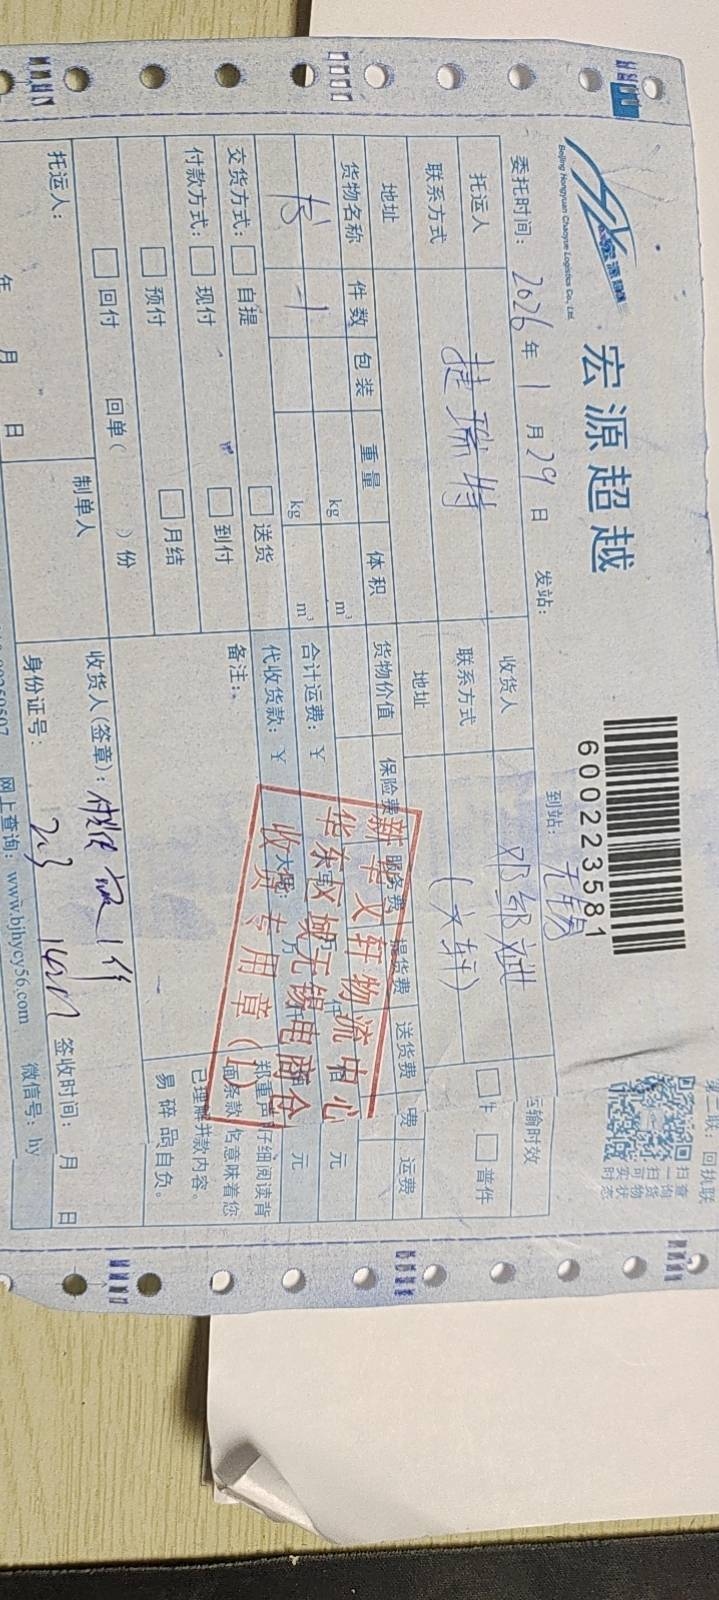 宏源超越
Beijing Hongyuan Chaoyue Logistics Co., Ltd.
600223581
第三联：回执联
委托时间：2026年1月29日 发站： 到站：无锡
托运人 捷瑞特 收货人 邓邹斌 运输时效
联系方式 联系方式 （文轩） 普件
地址 地址
货物名称 件数 包装 重量 体积 货物价值 保险费 服务费 提货费 送货费 费 运费
kg m³
书 1 kg m³ 合计运费：￥ 元
交货方式：□自提 □送货 代收货款：￥ 元
付款方式：□现付 □到付 备注：
□预付 □月结
□回付 回单（ ）份
托运人： 制单人 收货人（签章）：
年 月 日 身份证号： 签收时间： 月 日
已理解并款内容。
易碎品自负。
新华文轩物流中心
华东区域无锡电商仓
收货专用章（1）
网上查询：www.bjhycy56.com 微信号：hy